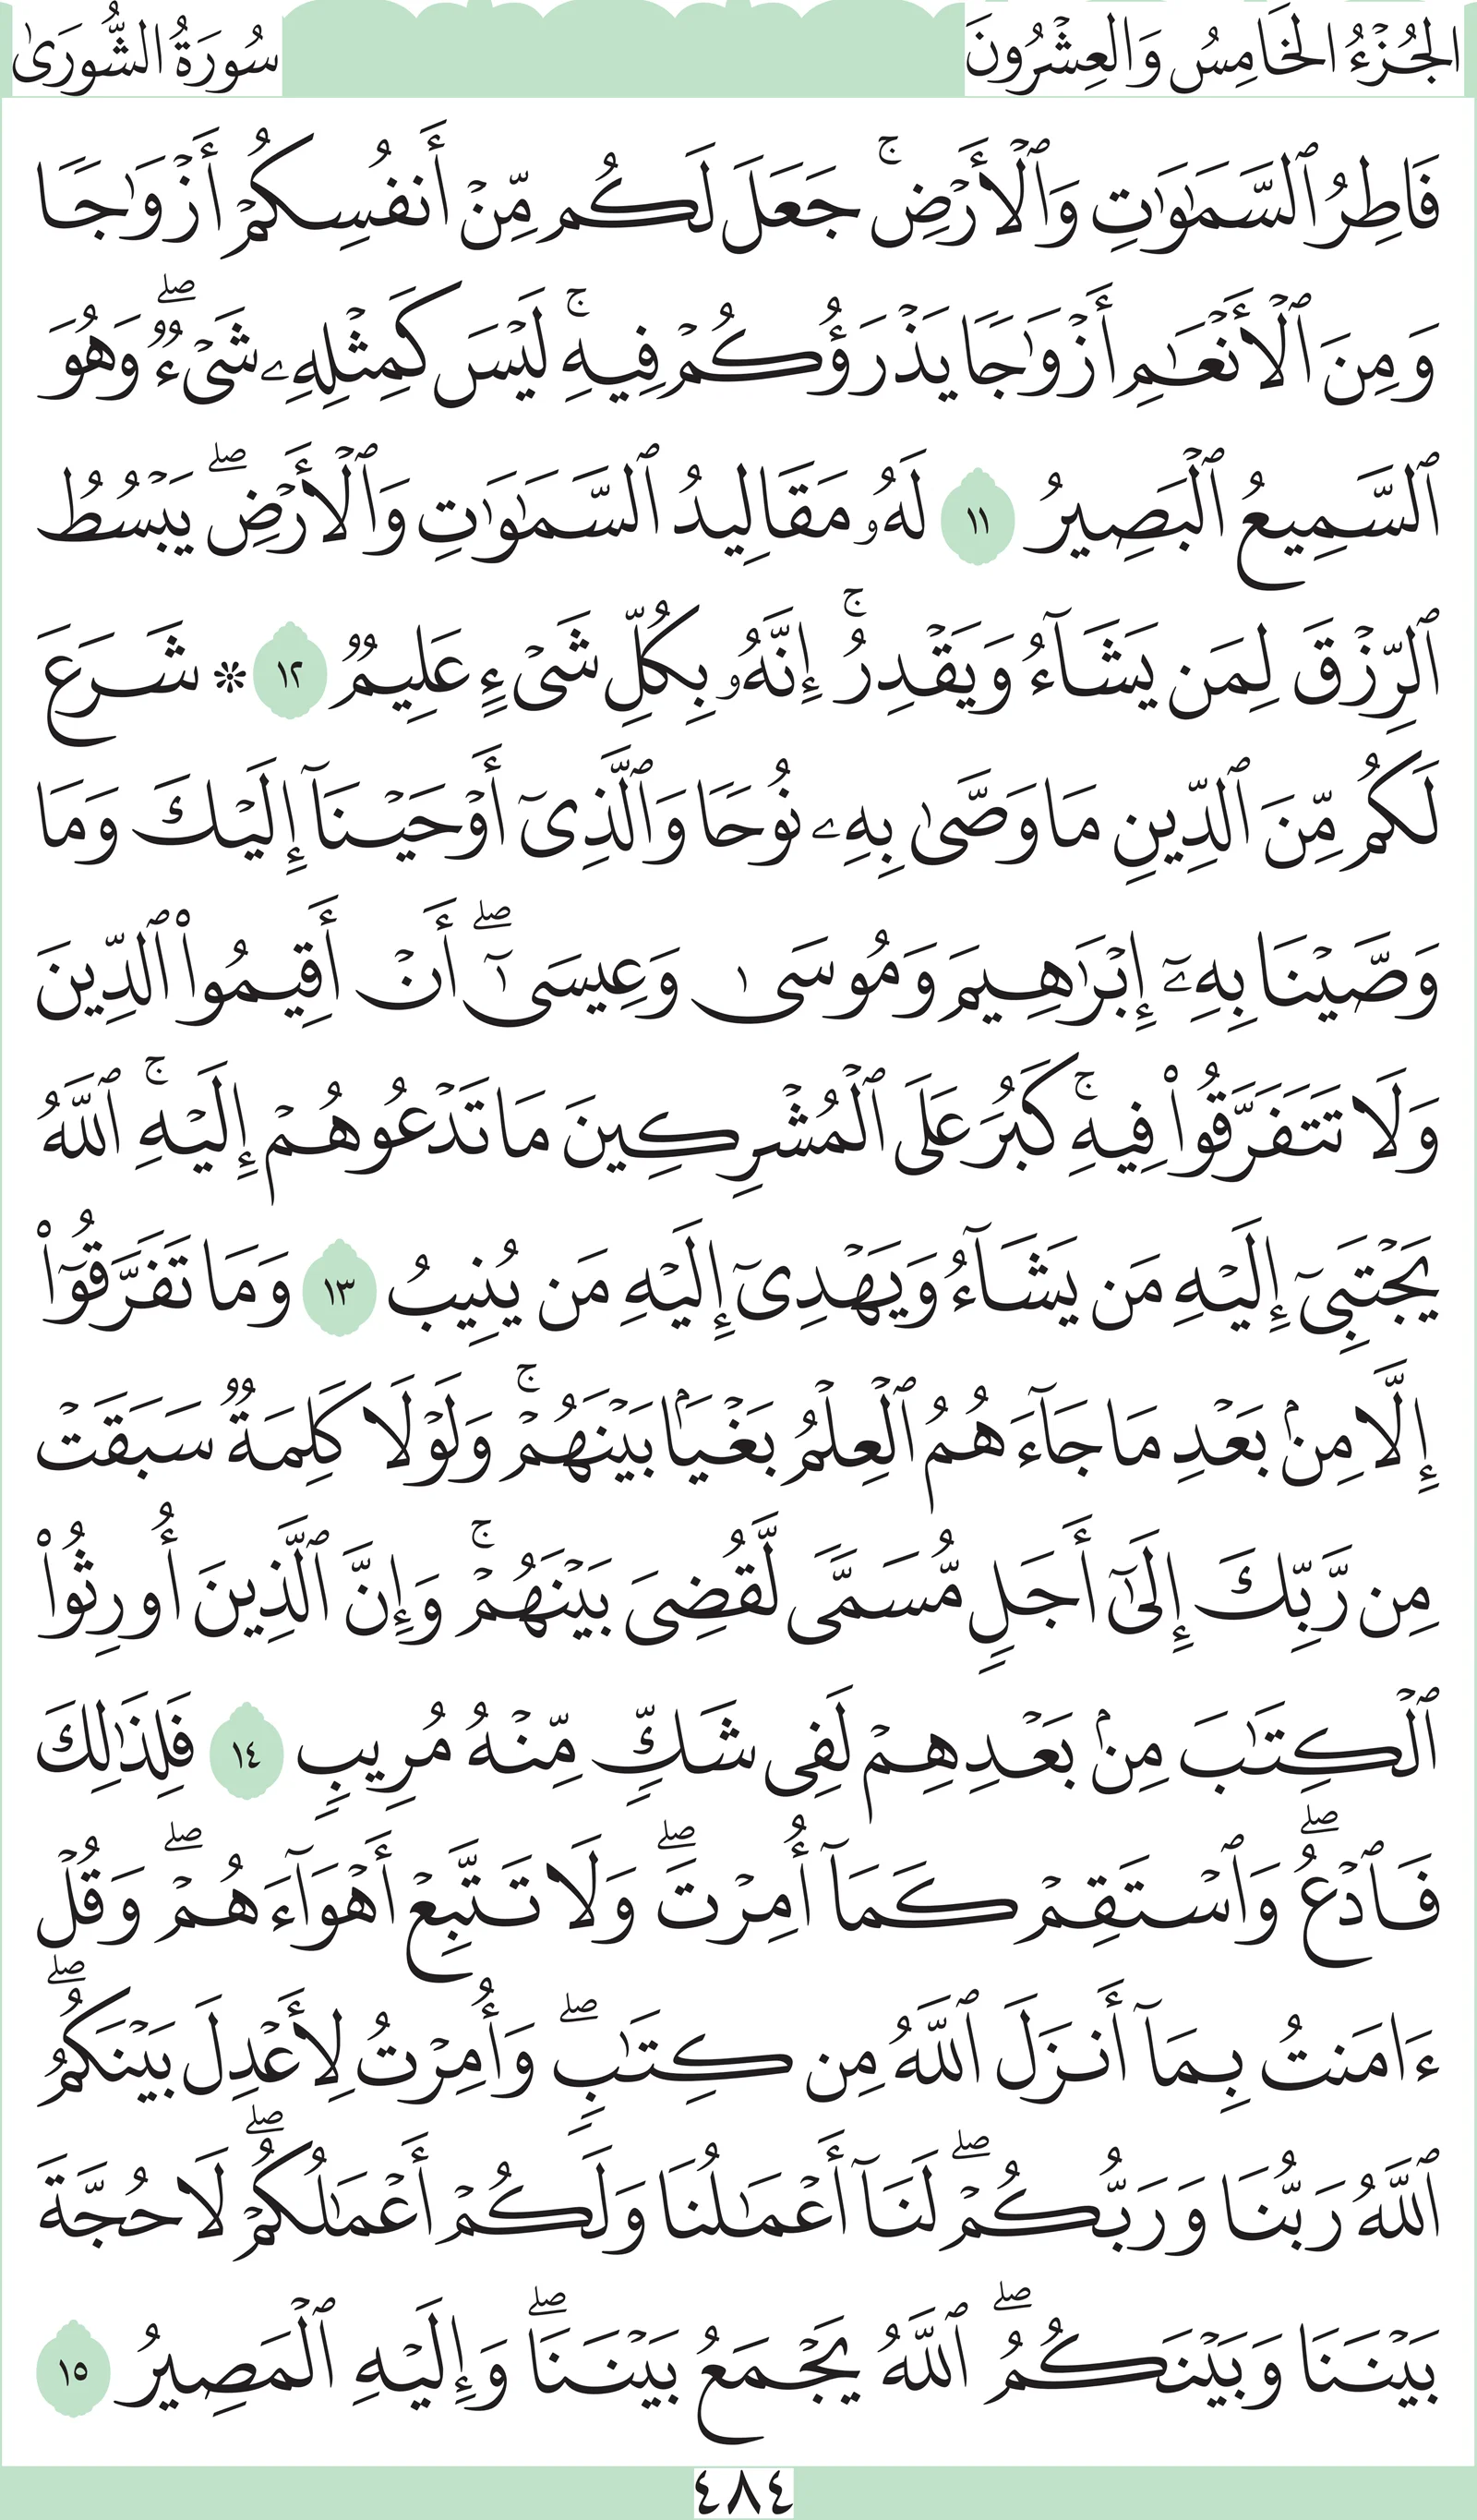 الجُزْءُ الخَامِسُ وَالعِشْرُونَ سُورَةُ الشُّورَىٰ
فَاطِرُ ٱلسَّمَٰوَٰتِ وَٱلۡأَرۡضِۚ جَعَلَ لَكُم مِّنۡ أَنفُسِكُمۡ أَزۡوَٰجٗا
وَمِنَ ٱلۡأَنۡعَٰمِ أَزۡوَٰجٗا يَذۡرَؤُكُمۡ فِيهِۚ لَيۡسَ كَمِثۡلِهِۦ شَيۡءٞۖ وَهُوَ
ٱلسَّمِيعُ ٱلۡبَصِيرُ ١١ لَهُۥ مَقَالِيدُ ٱلسَّمَٰوَٰتِ وَٱلۡأَرۡضِۖ يَبۡسُطُ
ٱلرِّزۡقَ لِمَن يَشَآءُ وَيَقۡدِرُۚ إِنَّهُۥ بِكُلِّ شَيۡءٍ عَلِيمٞ ١٢ ۞ شَرَعَ
لَكُم مِّنَ ٱلدِّينِ مَا وَصَّىٰ بِهِۦ نُوحٗا وَٱلَّذِيٓ أَوۡحَيۡنَآ إِلَيۡكَ وَمَا
وَصَّيۡنَا بِهِۦٓ إِبۡرَٰهِيمَ وَمُوسَىٰ وَعِيسَىٰٓۖ أَنۡ أَقِيمُواْ ٱلدِّينَ
وَلَا تَتَفَرَّقُواْ فِيهِۚ كَبُرَ عَلَى ٱلۡمُشۡرِكِينَ مَا تَدۡعُوهُمۡ إِلَيۡهِۚ ٱللَّهُ
يَجۡتَبِيٓ إِلَيۡهِ مَن يَشَآءُ وَيَهۡدِيٓ إِلَيۡهِ مَن يُنِيبُ ١٣ وَمَا تَفَرَّقُوٓاْ
إِلَّا مِنۢ بَعۡدِ مَا جَآءَهُمُ ٱلۡعِلۡمُ بَغۡيَۢا بَيۡنَهُمۡۚ وَلَوۡلَا كَلِمَةٞ سَبَقَتۡ
مِن رَّبِّكَ إِلَىٰٓ أَجَلٖ مُّسَمّٗى لَّقُضِيَ بَيۡنَهُمۡۚ وَإِنَّ ٱلَّذِينَ أُورِثُواْ
ٱلۡكِتَٰبَ مِنۢ بَعۡدِهِمۡ لَفِي شَكّٖ مِّنۡهُ مُرِيبٖ ١٤ فَلِذَٰلِكَ
فَٱدۡعُۖ وَٱسۡتَقِمۡ كَمَآ أُمِرۡتَۖ وَلَا تَتَّبِعۡ أَهۡوَآءَهُمۡۖ وَقُلۡ
ءَامَنتُ بِمَآ أَنزَلَ ٱللَّهُ مِن كِتَٰبٖۖ وَأُمِرۡتُ لِأَعۡدِلَ بَيۡنَكُمُۖ
ٱللَّهُ رَبُّنَا وَرَبُّكُمۡۖ لَنَآ أَعۡمَٰلُنَا وَلَكُمۡ أَعۡمَٰلُكُمۡۖ لَا حُجَّةَ
بَيۡنَنَا وَبَيۡنَكُمُۖ ٱللَّهُ يَجۡمَعُ بَيۡنَنَاۖ وَإِلَيۡهِ ٱلۡمَصِيرُ ١٥
٤٨٤